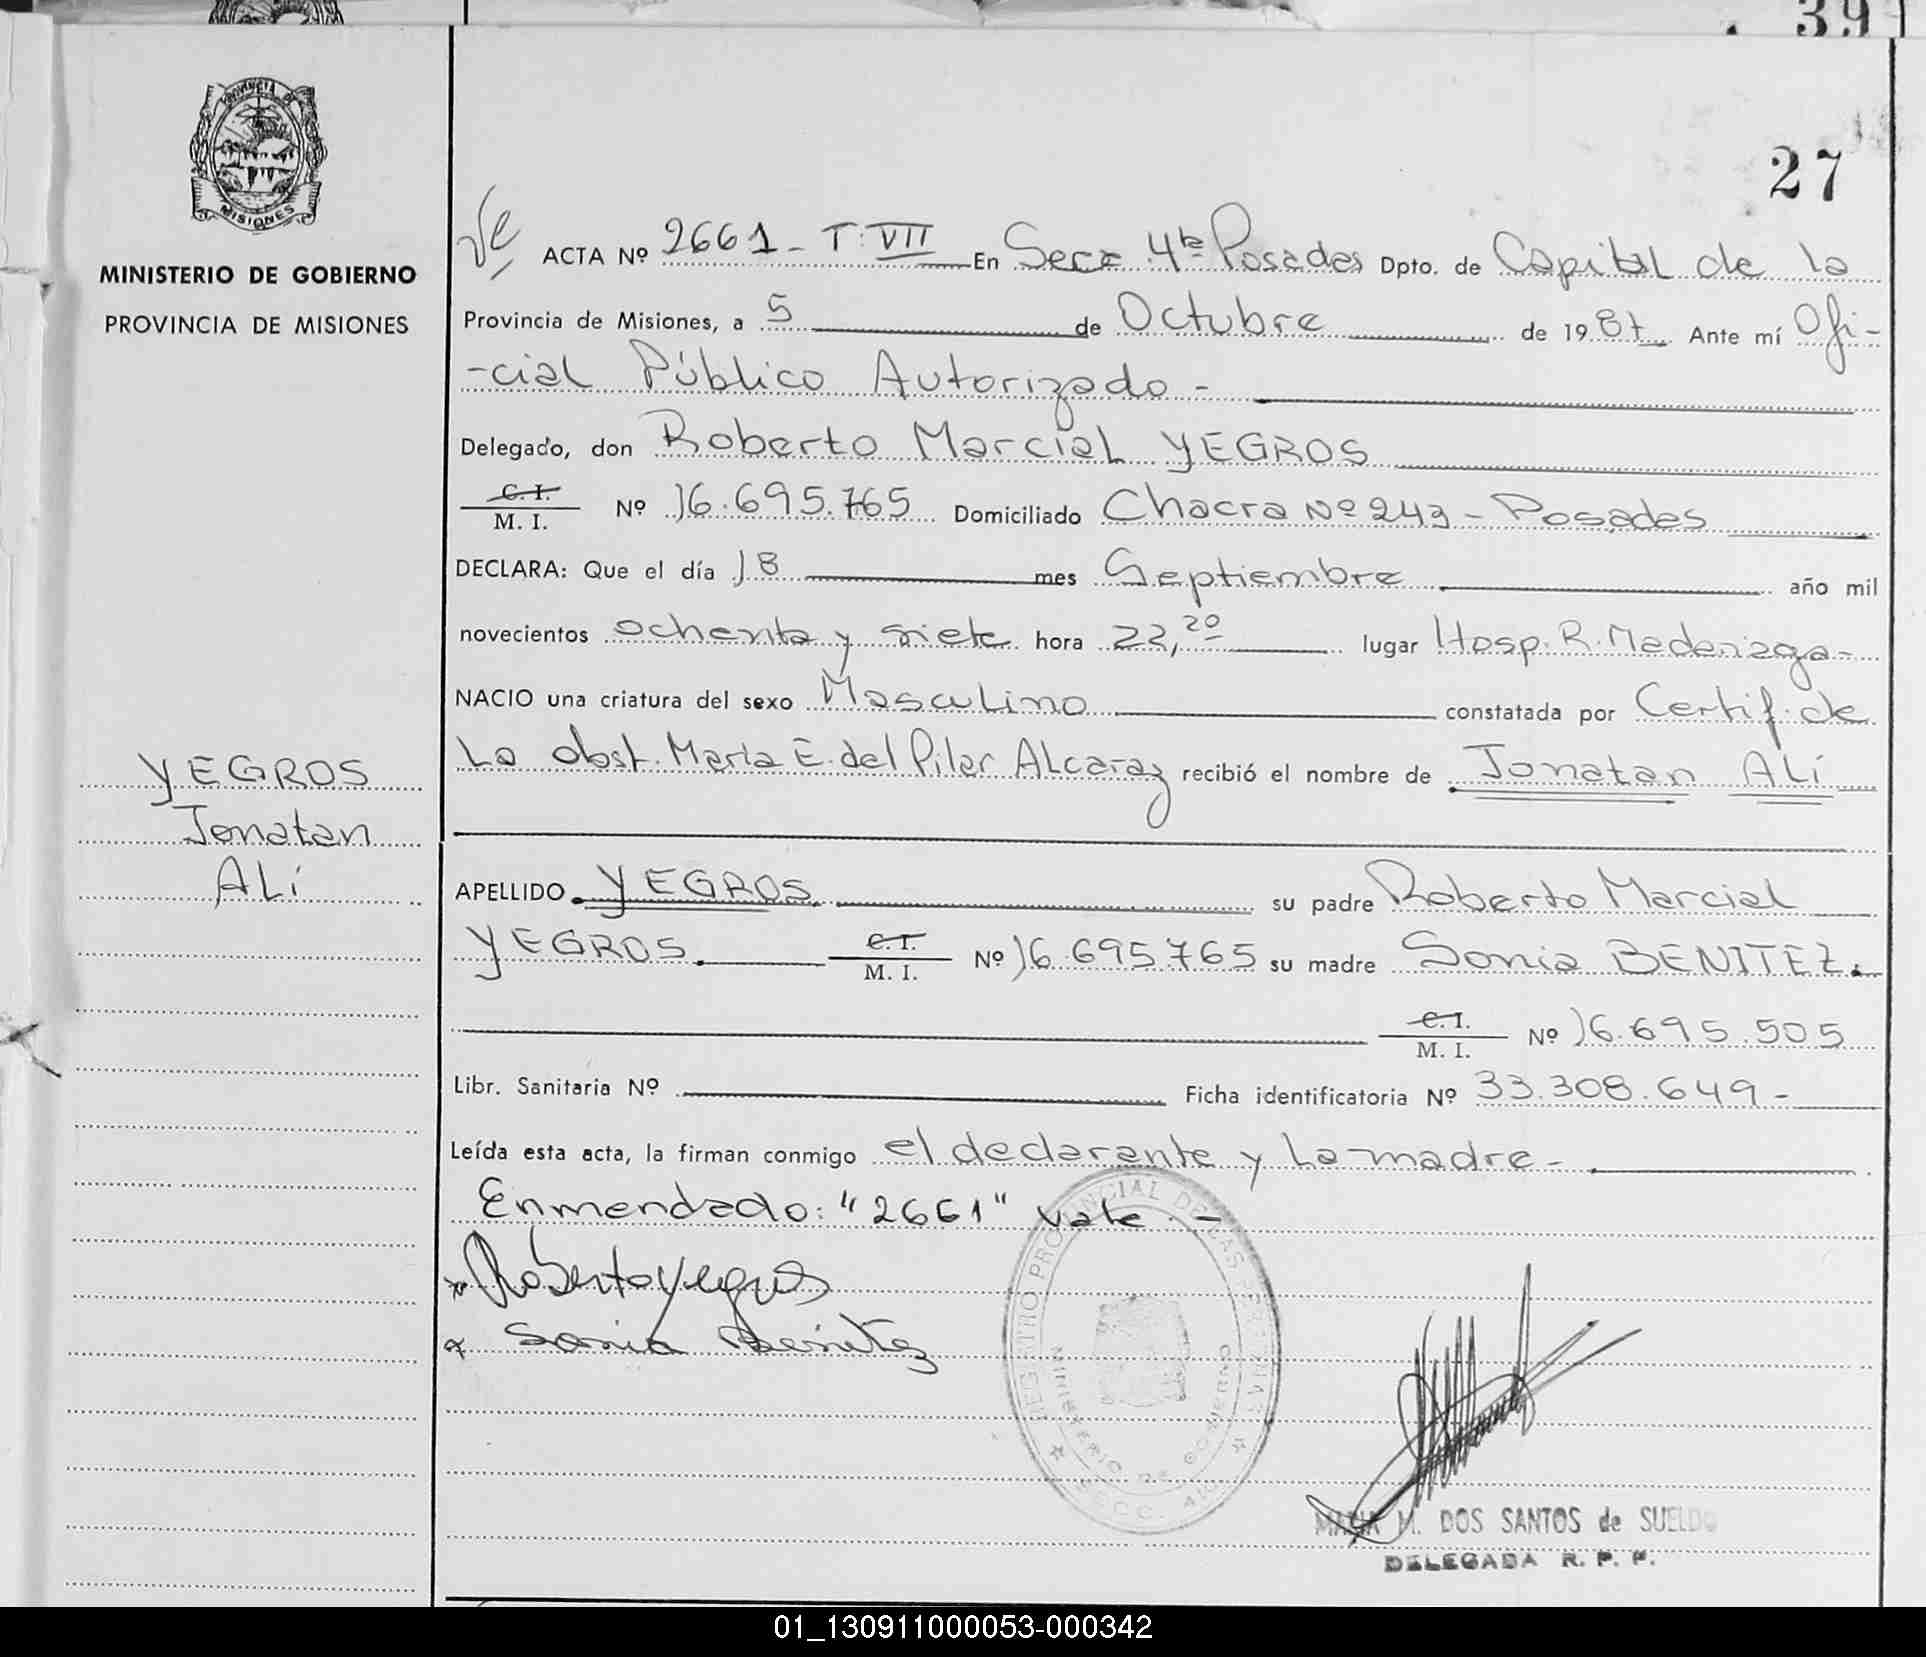 39
PROVINCIA DE
MISIONES
27
MINISTERIO DE GOBIERNO
PROVINCIA DE MISIONES
ACTA Nº 2661 - T: VII En Secc 4ta Posadas Dpto. de Capital de la
Provincia de Misiones, a 5 de Octubre de 1987 Ante mí Ofi-
-cial Público Autorizado -
Delegado, don Roberto Marcial YEGROS
C. I.
M. I. Nº 16.695.765 Domiciliado Chacra Nº 243 - Posadas
DECLARA: Que el día 18 mes Septiembre año mil
novecientos ochenta y siete hora 22,20 lugar Hosp. R. Madariaga-
NACIO una criatura del sexo Masculino constatada por Certif. de
La obst. Maria E. del Pilar Alcaraz recibió el nombre de Jonatan ALí
YEGROS
Jonatan
ALí
APELLIDO YEGROS su padre Roberto Marcial
YEGROS. C. I.
M. I. Nº 16.695.765 su madre Sonia BENITEZ.
C. I.
M. I. Nº 16.695.505
Libr. Sanitaria Nº Ficha identificatoria Nº 33.308.649 -
Leída esta acta, la firman conmigo el declarante y La madre -
Enmendado: "2661" vale. -
Roberto Yegros
Sonia Benitez
REGISTRO PROVINCIAL DE LAS PERSONAS
MINISTERIO DE GOBIERNO
MARIA M. DOS SANTOS de SUELDO
DELEGADA R. P. P.
01_130911000053-000342